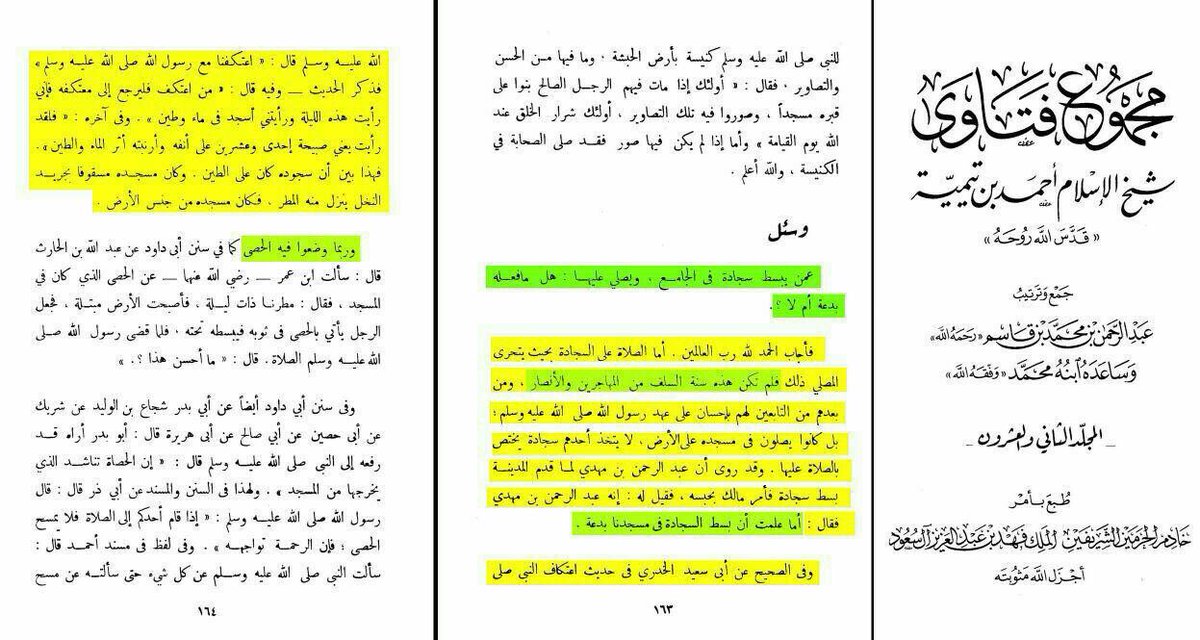 مجموع فتاوى
شيخ الإسلام أحمد بن تيمية
« قدس الله روحه »
جمع وترتيب
عبد الرحمن بن محمد بن قاسم « رحمه الله »
وساعده ابنه محمد « وفقه الله »
_ المجلد الثاني والعشرون _
طبع بأمر
خادم الحرمين الشريفين الملك فهد بن عبد العزيز آل سعود
أجزل الله مثوبته
للنبي صلى الله عليه وسلم كنيسة بأرض الحبشة ، وما فيها من الحسن
والتصاوير ، فقال : « أولئك إذا مات فيهم الرجل الصالح بنوا على
قبره مسجداً ، وصوروا فيه تلك التصاوير ، أولئك شرار الخلق عند
الله يوم القيامة » وأما إذا لم يكن فيها صور فقد صلى الصحابة في
الكنيسة ، والله أعلم .
وسئل
عمن يبسط سجادة فى الجامع ، ويصلي عليها : هل مافعله
بدعة أم لا ؟.
فأجاب الحمد لله رب العالمين . أما الصلاة على السجادة بحيث يتحرى
المصلي ذلك فلم تكن هذه سنة السلف من المهاجرين والأنصار ، ومن
بعدهم من التابعين لهم بإحسان على عهد رسول الله صلى الله عليه وسلم ؛
بل كانوا يصلون فى مسجده على الأرض ، لا يتخذ أحدهم سجادة يختص
بالصلاة عليها . وقد روى أن عبد الرحمن بن مهدي لما قدم المدينة
بسط سجادة فأمر مالك بحبسه ، فقيل له : إنه عبد الرحمن بن مهدي
فقال : أما علمت أن بسط السجادة فى مسجدنا بدعة .
وفى الصحيح عن أبي سعيد الخدري فى حديث اعتكاف النبي صلى
١٦٣
الله عليه وسلم قال : « اعتكفنا مع رسول الله صلى الله عليه وسلم »
فذكر الحديث — وفيه قال : « من اعتكف فليرجع إلى معتكفه فإني
رأيت هذه الليلة ورأيتني أسجد فى ماء وطين » . وفى آخره : « فلقد
رأيت يعني صبيحة إحدى وعشرين على أنفه وأرنبته أثر الماء والطين » .
فهذا بين أن سجوده كان على الطين . وكان مسجده مسقوفا بجريد
النخل ينزل منه المطر ، فكان مسجده من جنس الأرض .
وربما وضعوا فيه الحصى كما في سنن أبى داود عن عبد الله بن الحارث
قال : سألت ابن عمر — رضي الله عنهما — عن الحصى الذي كان في
المسجد ، فقال : مطرنا ذات ليلة ، فأصبحت الأرض مبتلة ، فجعل
الرجل يأتي بالحصى فى ثوبه فيبسطه تحته ، فلما قضى رسول الله صلى
الله عليه وسلم الصلاة . قال : « ما أحسن هذا ؟ . »
وفى سنن أبي داود أيضاً عن أبي بدر شجاع بن الوليد عن شريك
عن أبي حصين عن أبي صالح عن أبى هريرة قال : أبو بدر أراه قد
رفعه إلى النبي صلى الله عليه وسلم قال : « إن الحصاة تناشد الذي
يخرجها من المسجد » . ولهذا فى السنن والمسند عن أبي ذر قال : قال
رسول الله صلى الله عليه وسلم : « إذا قام أحدكم إلى الصلاة فلا يمسح
الحصى ؛ فإن الرحمة تواجهه » . وفى لفظ فى مسند أحمد قال :
سألت النبي صلى الله عليه وسلم عن كل شيء حتى سألته عن مسح
١٦٤